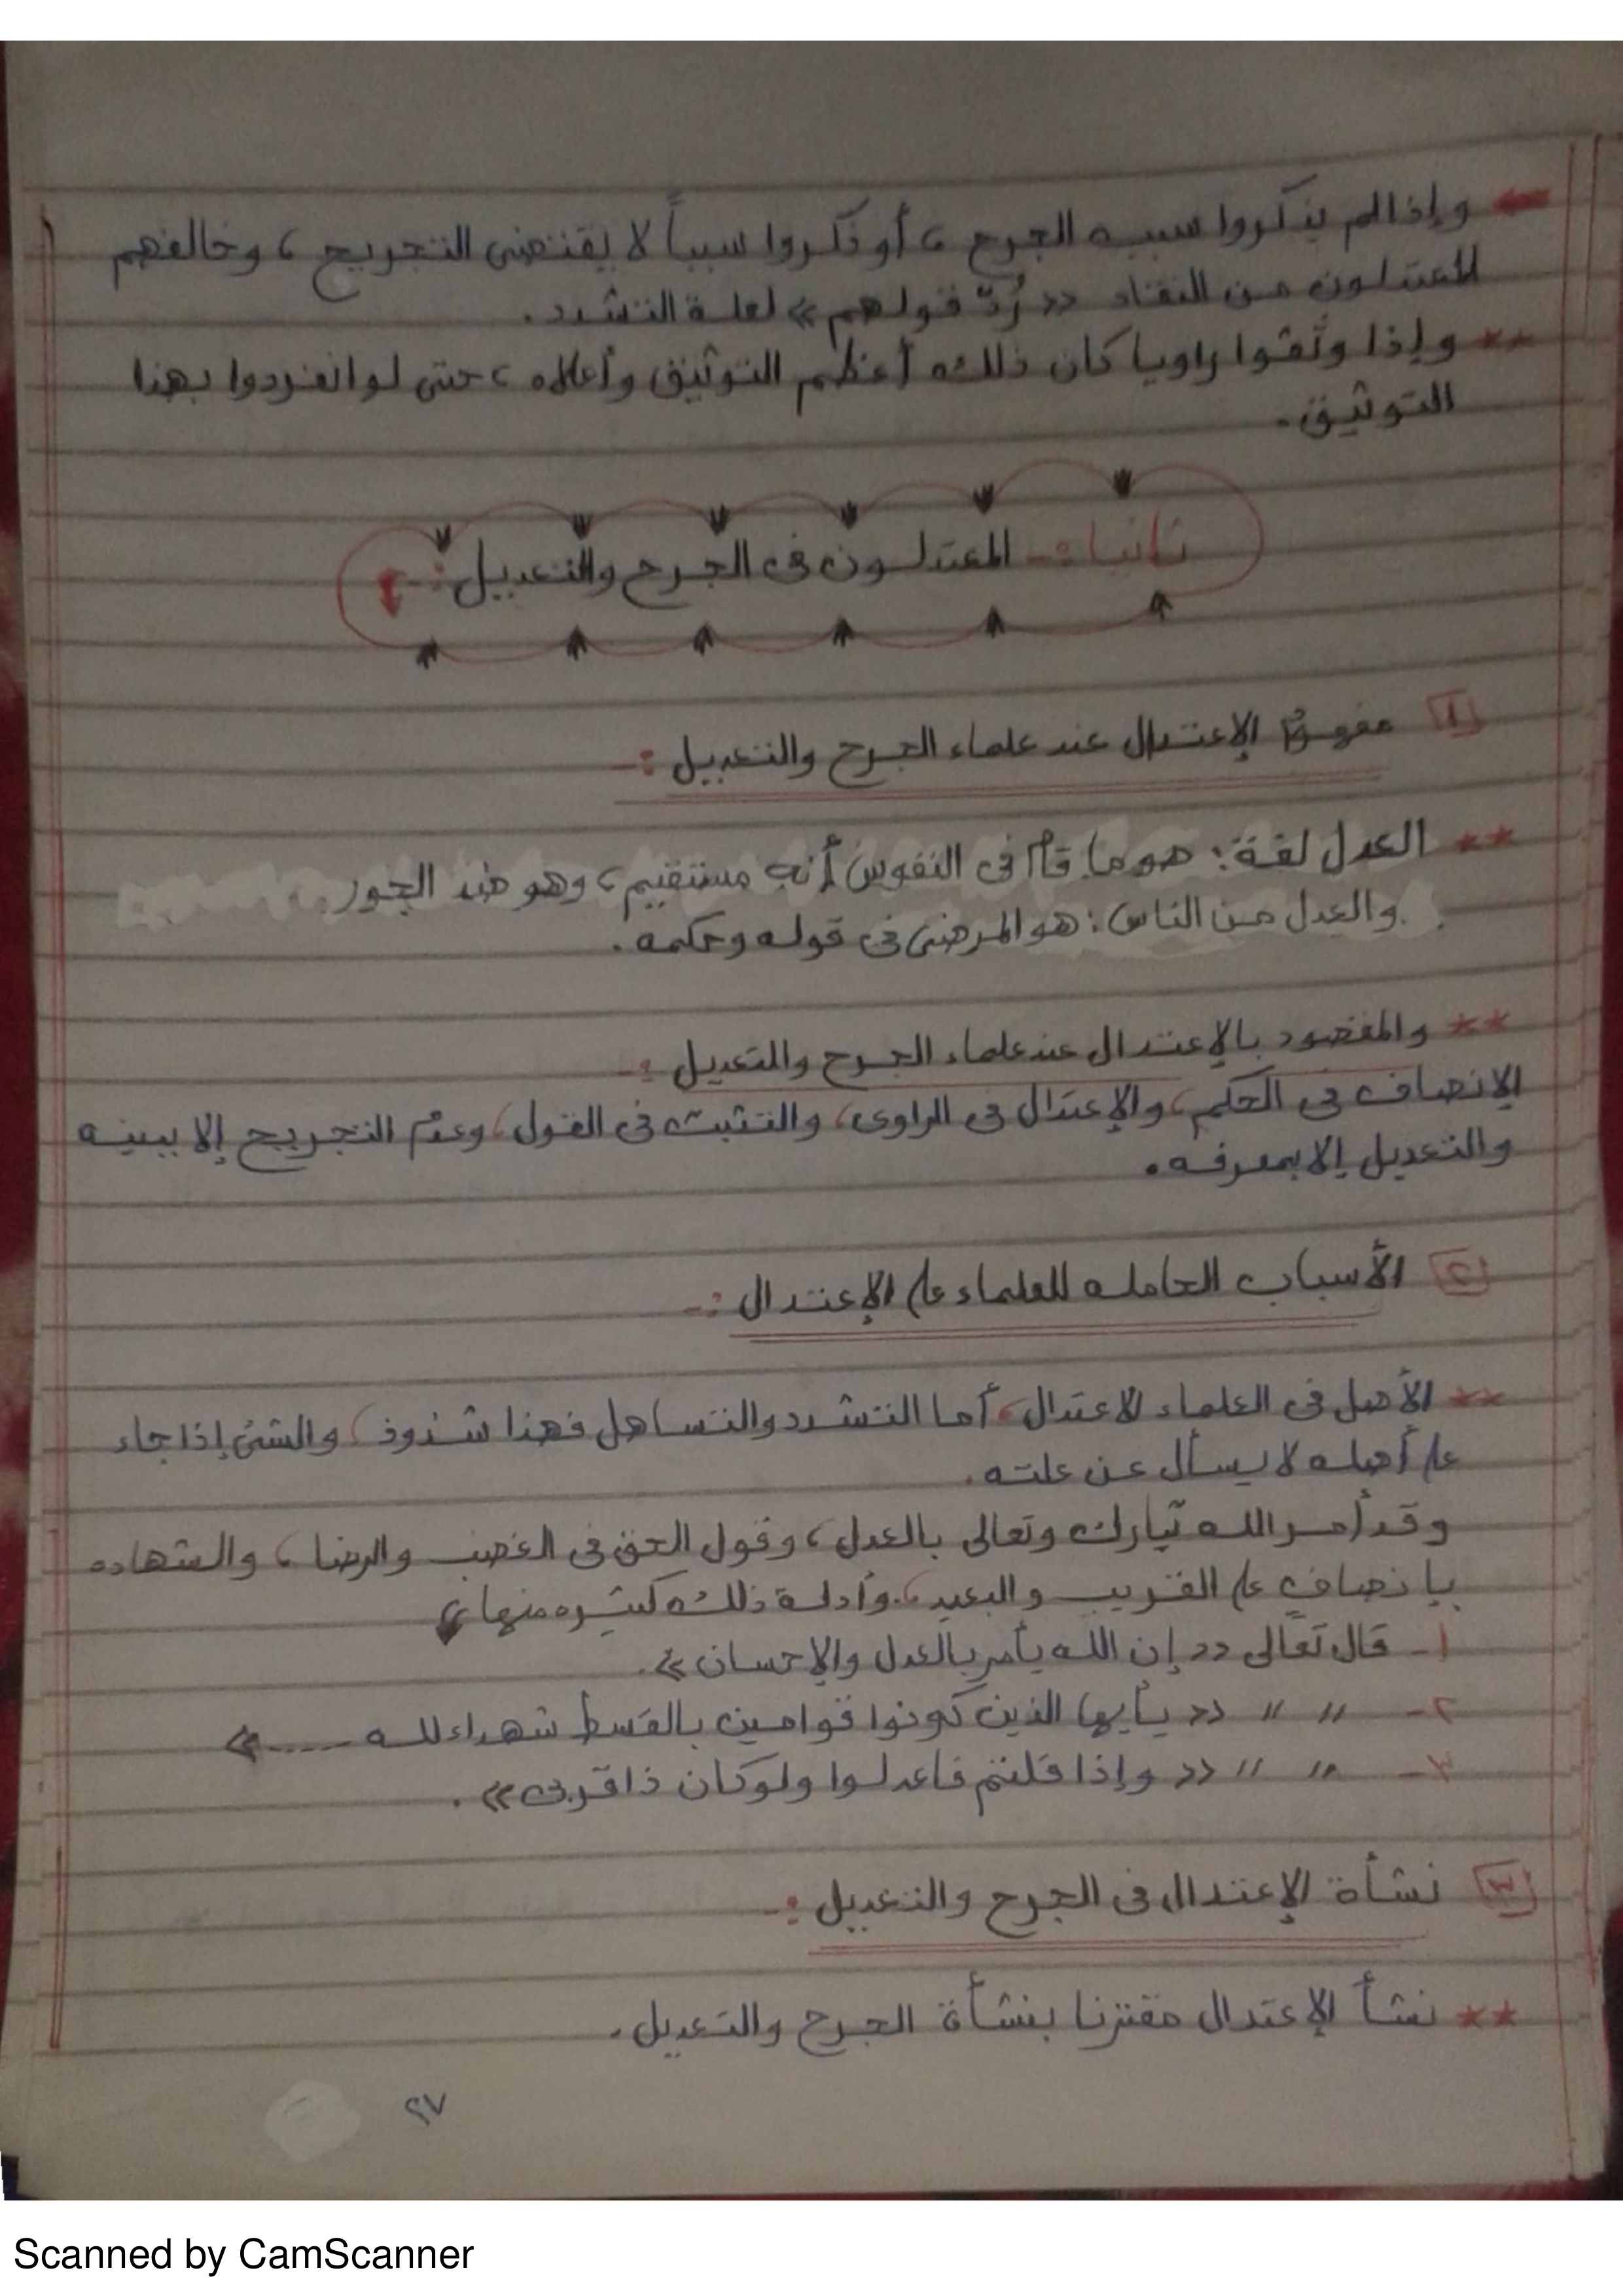 وإذا لم يذكروا سبب الجرح ، أو ذكروا سبباً لا يقتضى التجريح ، وخالفهم
المعتدلون من النقاد << رُدّ قولهم >> لعلة التشدد .
** وإذا وثّقوا راويا كان ذلك أعظم التوثيق وأعلاه ، حتى لو انفردوا بهذا
التوثيق .
ثانيا :- المعتدلون فى الجرح والتعديل :-
١ مفهوم الإعتدال عند علماء الجرح والتعديل :-
** العدل لغة : هو ما قام فى النفوس أنه مستقيم ، وهو ضد الجور .
والعدل من الناس : هو المرضى فى قوله وحكمه .
** والمقصود بالإعتدال عند علماء الجرح والتعديل :-
الإنصاف فى الحكم ، والإعتدال فى الراوى ، والتثبت فى القول ، وعدم التجريح إلا ببينه
والتعديل إلا بمعرفه .
٢ الأسباب الحامله للعلماء على الإعتدال :-
** الأصل فى العلماء الاعتدال ، أما التشدد والتساهل فهذا شذوذ ، والشئ إذا جاء
على أصله لا يسأل عن علته .
وقد أمر الله تبارك وتعالى بالعدل ، وقول الحق فى الغضب والرضا ، والشهاده
بإنصاف على القريب والبعيد ، وأدلة ذلك كثيره منها ؛
١- قال تعالى << إن الله يأمر بالعدل والإحسان >> .
٢- " " << يأيها الذين كونوا قوامين بالقسط شهداء لله ..... >>
٣- " " << وإذا قلتم فاعدلوا ولو كان ذا قربى >> .
٣ نشأة الإعتدال فى الجرح والتعديل :-
** نشأ الإعتدال مقترنا بنشأة الجرح والتعديل .
٢٧
Scanned by CamScanner